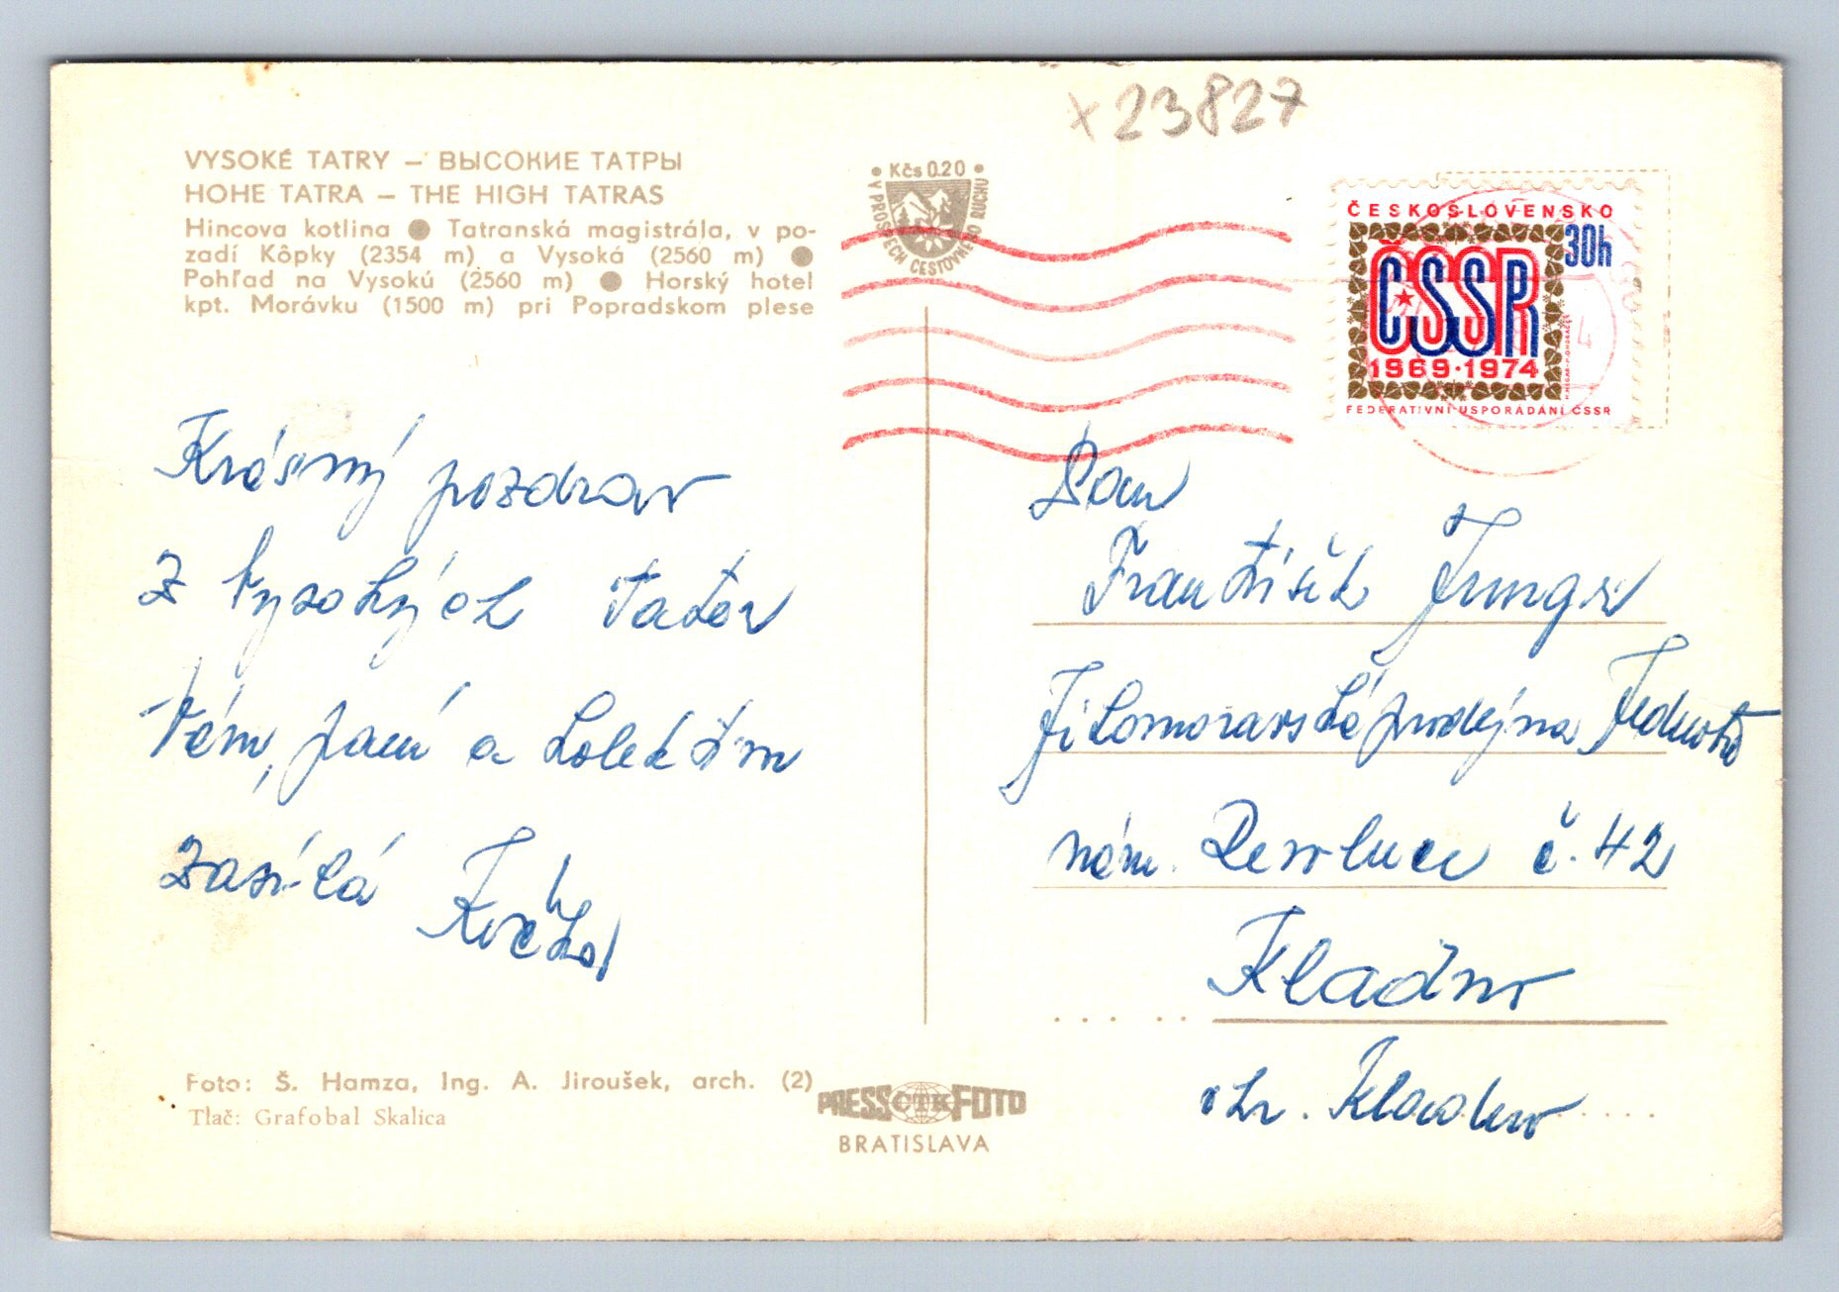 x23827
VYSOKÉ TATRY – ВЫСОКИЕ ТАТРЫ
HOHE TATRA – THE HIGH TATRAS
Hincova kotlina ● Tatranská magistrála, v po-
zadí Kôpky (2354 m) a Vysoká (2560 m) ●
Pohľad na Vysokú (2560 m) ● Horský hotel
kpt. Morávku (1500 m) pri Popradskom plese
• Kčs 0.20 •
V PROSPECH CESTOVNÉHO RUCHU
ČESKOSLOVENSKO
30h
ČSSR
1969·1974
FEDERATIVNÍ USPOŘÁDÁNÍ ČSSR
Krásný pozdrav
z Vysokých Tater
Vám, paní a kolektivu
zasílá
Pan
František Junger
Jihomoravská prodejna Jednota
nám. Revoluce č. 42
Kladno
okr. Kladno
Foto: Š. Hamza, Ing. A. Jiroušek, arch. (2)
Tlač: Grafobal Skalica
PRESS ČTK FOTO
BRATISLAVA